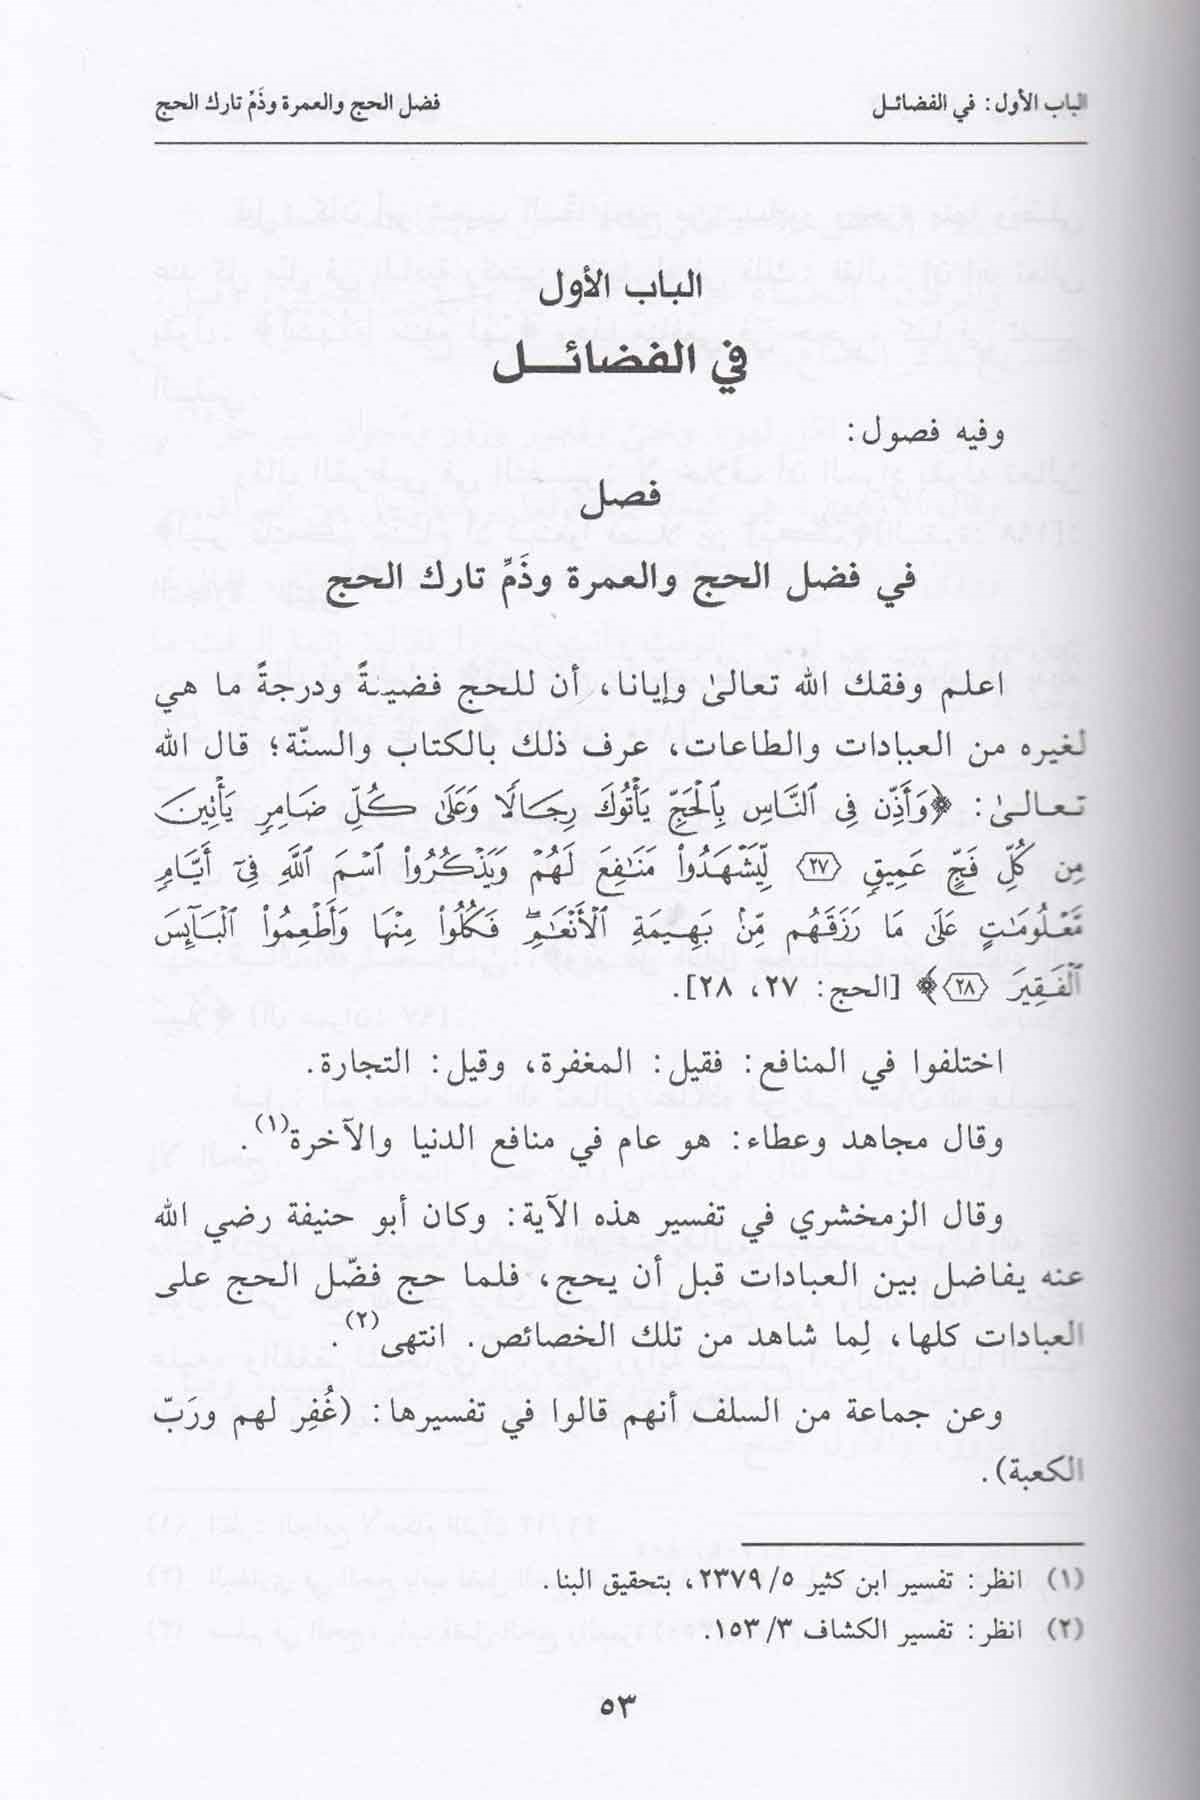 الباب الأول: في الفضائـل
فضل الحج والعمرة وذَمِّ تارك الحج
الباب الأول
في الفضائـل
وفيه فصول:
فصل
في فضل الحج والعمرة وذَمِّ تارك الحج
اعلم وفقك الله تعالىٰ وإيانا، أن للحج فضيلةً ودرجةً ما هي
لغيره من العبادات والطاعات، عرف ذلك بالكتاب والسنّة؛ قال الله
تعـالـىٰ: ﴿وَأَذِّن فِى ٱلنَّاسِ بِٱلْحَجِّ يَأْتُوكَ رِجَالًا وَعَلَىٰ كُلِّ ضَامِرٍ يَأْتِينَ
مِن كُلِّ فَجٍّ عَمِيقٍ ﴿٢٧﴾ لِّيَشْهَدُوا۟ مَنَٰفِعَ لَهُمْ وَيَذْكُرُوا۟ ٱسْمَ ٱللَّهِ فِىٓ أَيَّامٍ
مَّعْلُومَٰتٍ عَلَىٰ مَا رَزَقَهُم مِّنۢ بَهِيمَةِ ٱلْأَنْعَٰمِ ۖ فَكُلُوا۟ مِنْهَا وَأَطْعِمُوا۟ ٱلْبَآئِسَ
ٱلْفَقِيرَ ﴿٢٨﴾﴾ [الحج: ٢٧، ٢٨].
اختلفوا في المنافع: فقيل: المغفرة، وقيل: التجارة.
وقال مجاهد وعطاء: هو عام في منافع الدنيا والآخرة(١).
وقال الزمخشري في تفسير هذه الآية: وكان أبو حنيفة رضي الله
عنه يفاضل بين العبادات قبل أن يحج، فلما حج فضّل الحج على
العبادات كلها، لِما شاهد من تلك الخصائص. انتهى(٢).
وعن جماعة من السلف أنهم قالوا في تفسيرها: (غُفِر لهم ورَبّ
الكعبة).
(١) انظر: تفسير ابن كثير ٥/ ٢٣٧٩، بتحقيق البنا.
(٢) انظر: تفسير الكشاف ٣/ ١٥٣.
٥٣